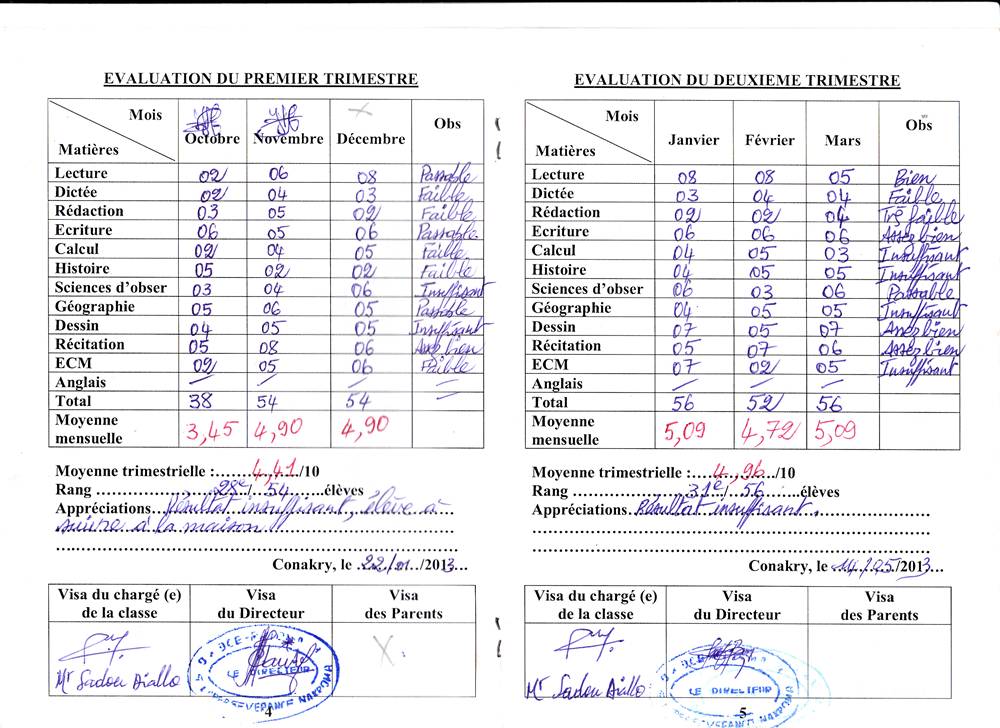 EVALUATION DU PREMIER TRIMESTRE
Matières Mois Octobre Novembre Décembre Obs
Lecture 02 06 08 Passable
Dictée 02 04 03 Faible
Rédaction 03 05 02 Faible
Ecriture 06 05 06 Passable
Calcul 02 04 05 Faible
Histoire 05 02 02 Faible
Sciences d'obser 03 04 06 Insuffisant
Géographie 05 06 05 Passable
Dessin 04 05 05 Insuffisant
Récitation 05 08 06 Assez bien
ECM 02 05 06 Faible
Anglais
Total 38 54 54
Moyenne mensuelle 3,45 4,90 4,90
Moyenne trimestrielle :........4,41./10
Rang ........................28e/..54........élèves
Appréciations....Résultat insuffisant, élève à
suivre à la maison !!
Conakry, le ..22/01./2013...
Visa du chargé (e) de la classe Visa du Directeur Visa des Parents
Mr Sadou Diallo
LE DIRECTEUR
4
EVALUATION DU DEUXIEME TRIMESTRE
Matières Mois Janvier Février Mars Obs
Lecture 08 08 05 Bien
Dictée 03 04 04 Faible
Rédaction 02 02 04 Très faible
Ecriture 06 06 06 Assez bien
Calcul 04 05 03 Insuffisant
Histoire 04 05 05 Insuffisant
Sciences d'obser 06 03 06 Passable
Géographie 04 05 05 Insuffisant
Dessin 07 05 07 Assez bien
Récitation 05 07 06 Assez bien
ECM 07 02 05 Insuffisant
Anglais
Total 56 52 56
Moyenne mensuelle 5,09 4,72 5,09
Moyenne trimestrielle :........4,96./10
Rang ........................31e/..56........élèves
Appréciations..Résultat insuffisant.
Conakry, le ..14/05/2013...
Visa du chargé (e) de la classe Visa du Directeur Visa des Parents
Mr Sadou Diallo
LE DIRECTEUR
5